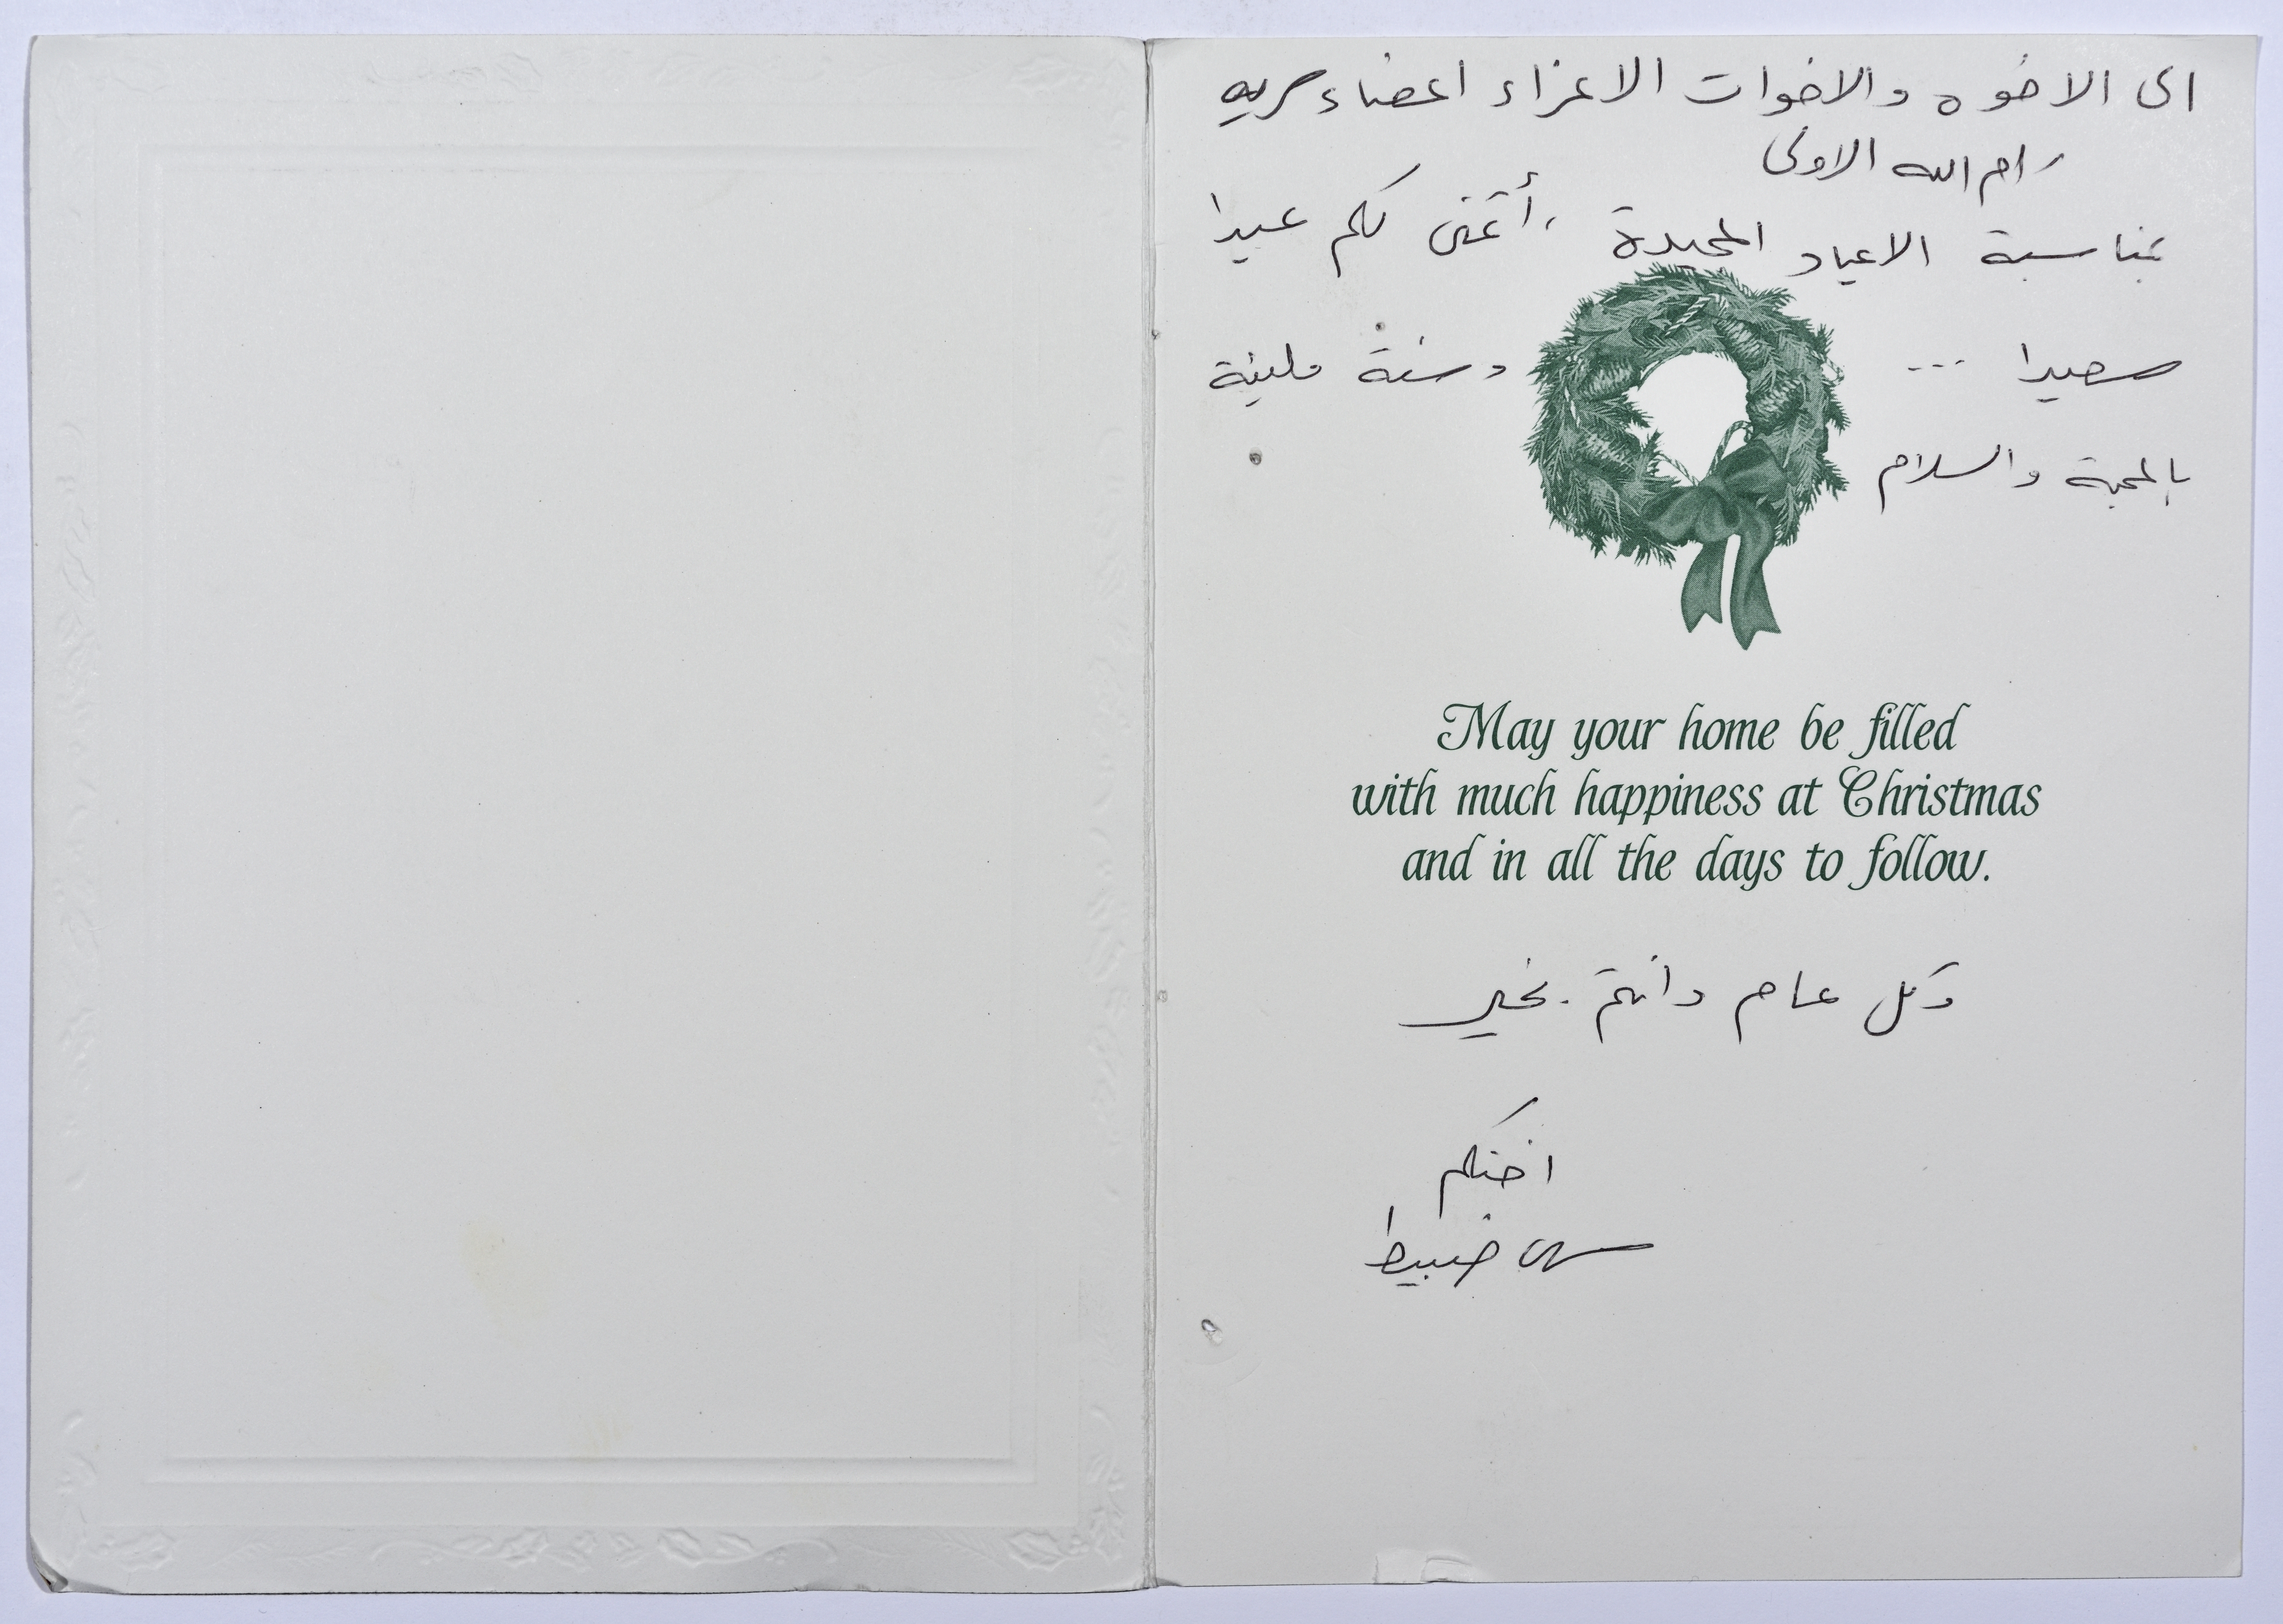 الى الاخوه والاخوات الاعزاء اعضاء سريه
رام الله الاولى
بمناسبة الاعياد المجيدة ، أتمنى لكم عيدا
سعيدا ... وسنة مليئة
بالمحبة والسلام
May your home be filled
with much happiness at Christmas
and in all the days to follow.
وكل عام وانتم بخير
اختكم
سهى خبيط